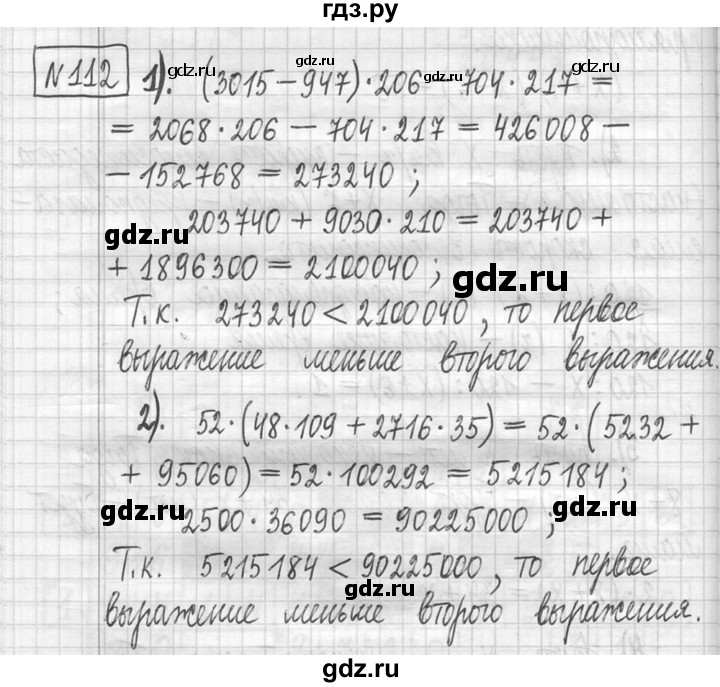 гдз.ру
№112 1). (3015 − 947) · 206 − 704 · 217 =
= 2068 · 206 − 704 · 217 = 426008 −
− 152768 = 273240 ;
203740 + 9030 · 210 = 203740 +
+ 1896300 = 2100040 ;
Т.к. 273240 < 2100040, то первое
выражение меньше второго выражения.
2). 52 · (48 · 109 + 2716 · 35) = 52 · (5232 +
+ 95060) = 52 · 100292 = 5215184 ;
2500 · 36090 = 90225000 ;
Т.к. 5215184 < 90225000, то первое
выражение меньше второго выражения.
gdz.ru
gdz.ru
gdz.ru
gdz.ru
gdz.ru
gdz.ru
gdz.ru
gdz.ru
gdz.ru